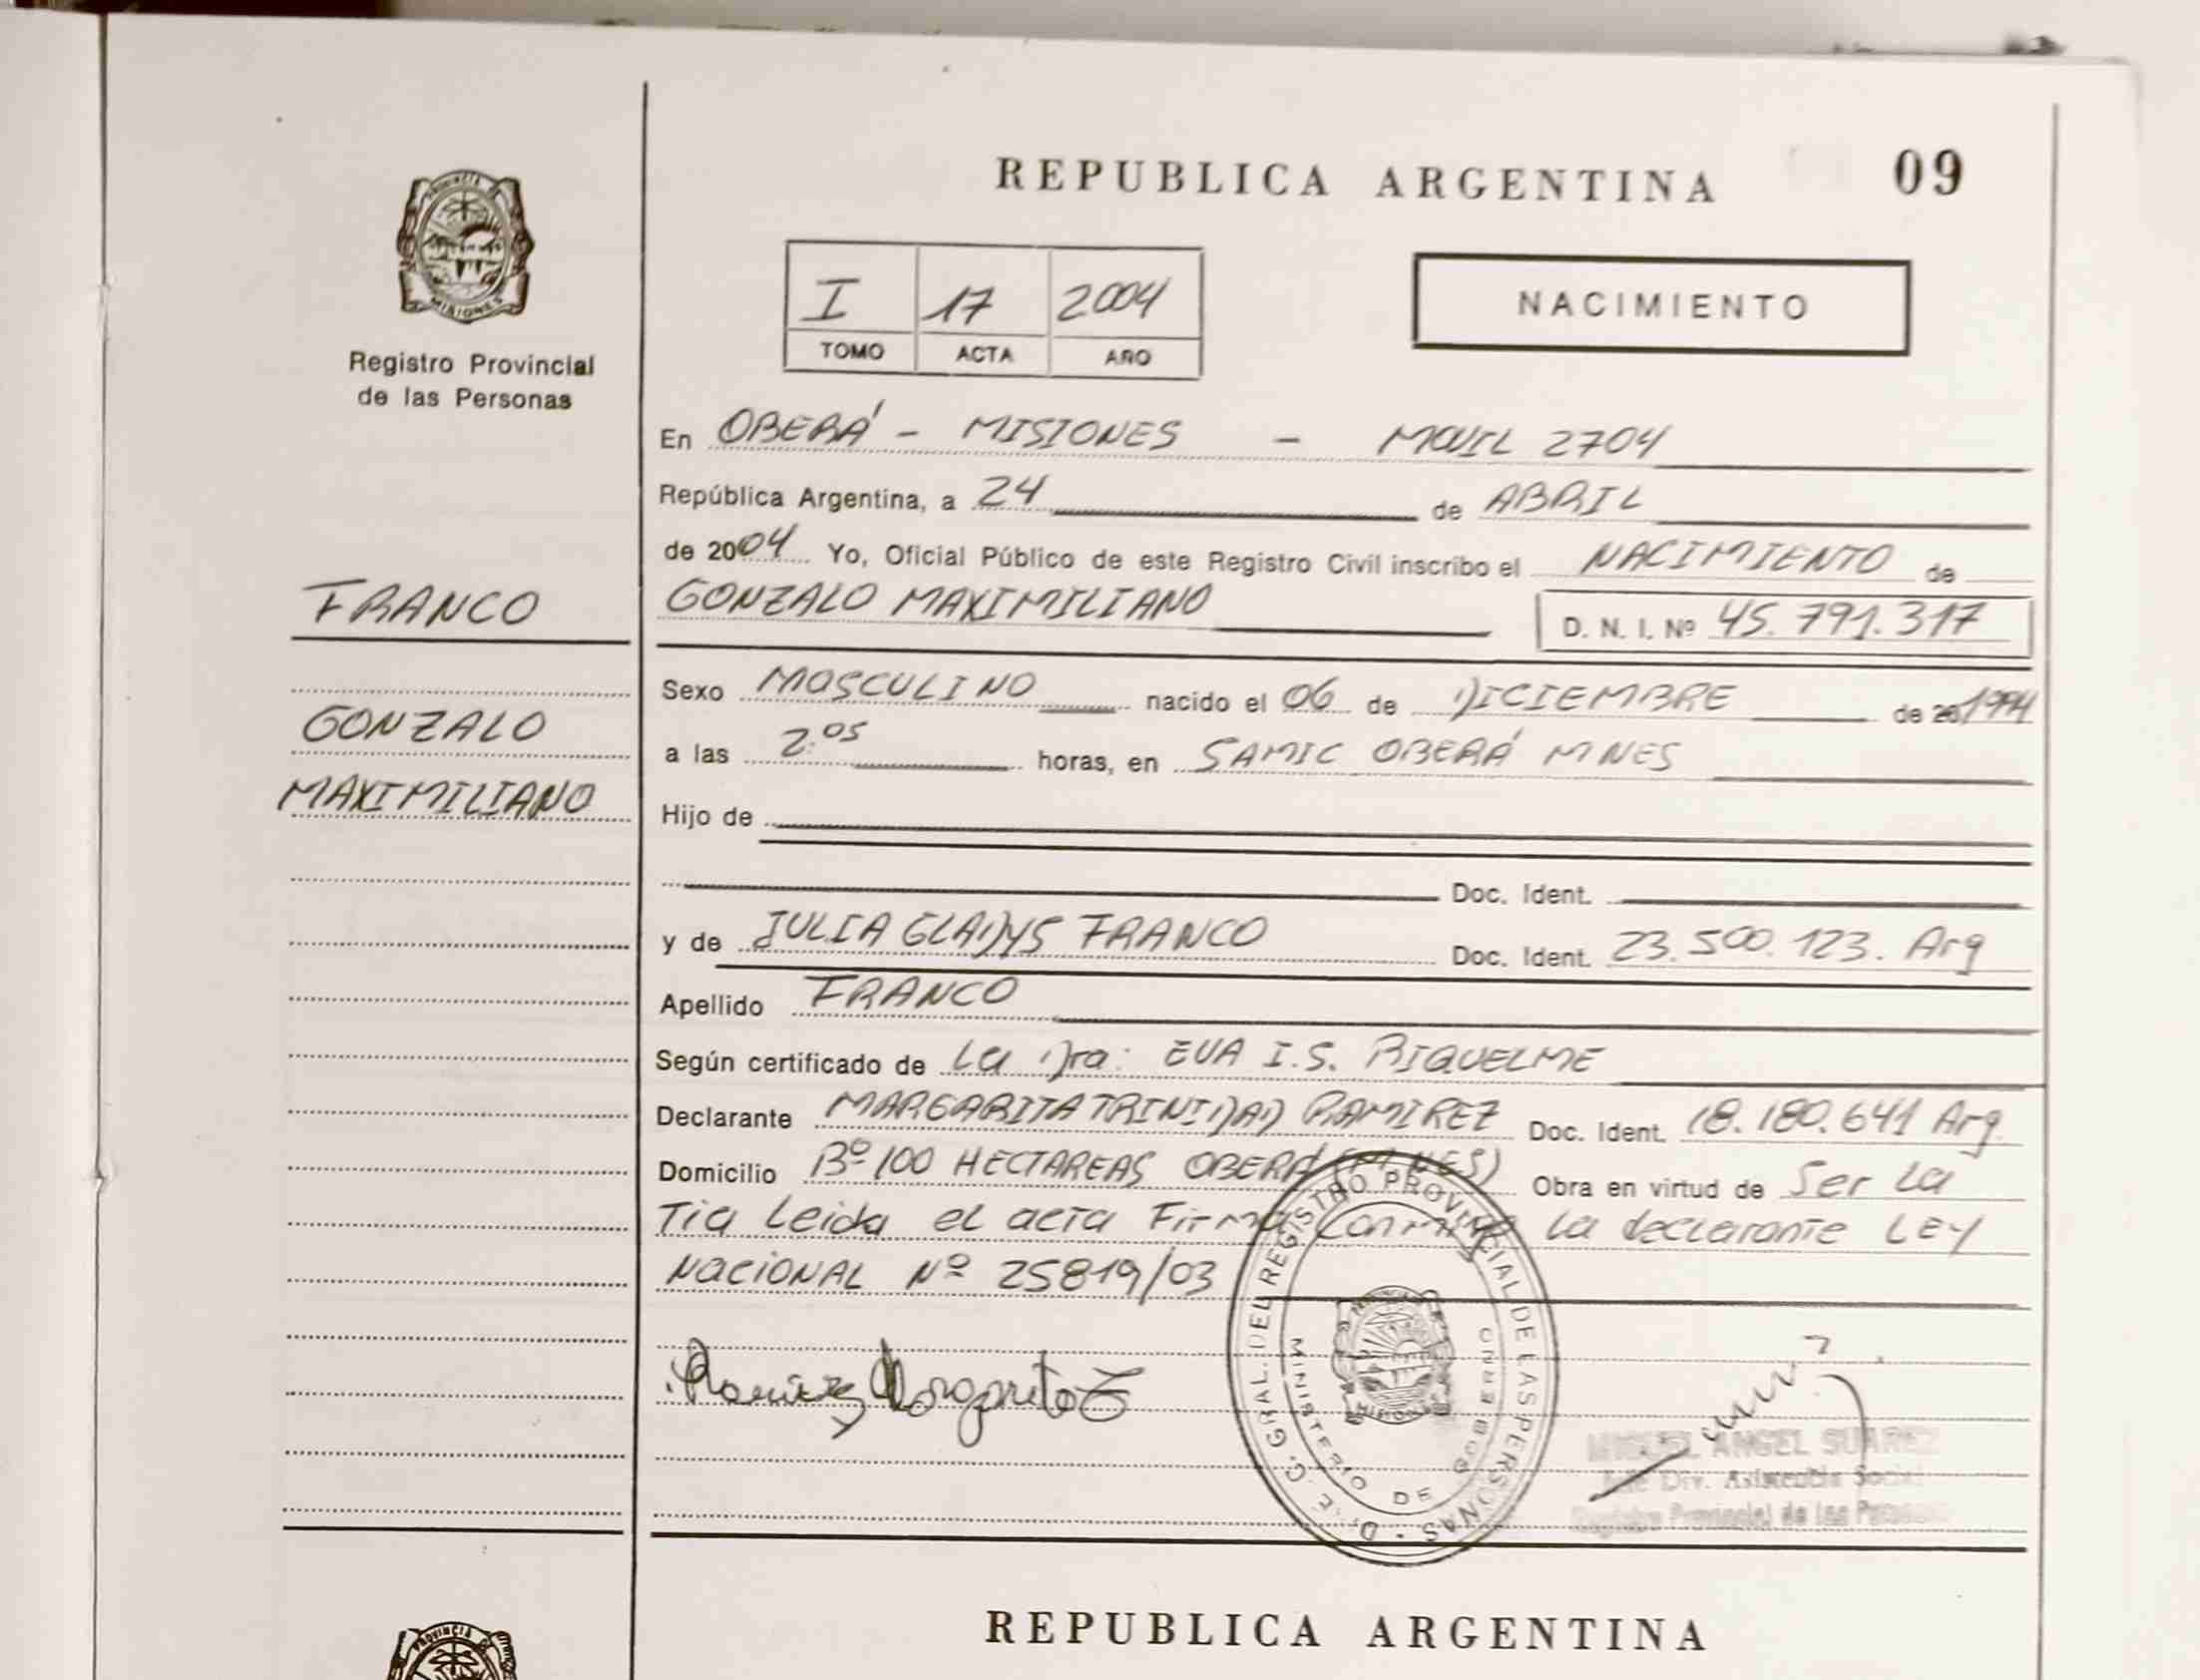 REPUBLICA ARGENTINA 09
PROVINCIA DE
MISIONES
Registro Provincial
de las Personas
I 17 2004
TOMO ACTA AÑO
NACIMIENTO
En OBERÁ - MISIONES - MOVIL 2704
República Argentina, a 24 de ABRIL
de 2004 Yo, Oficial Público de este Registro Civil inscribo el NACIMIENTO de
FRANCO
GONZALO MAXIMILIANO D. N. I. Nº 45.791.317
Sexo MASCULINO nacido el 06 de DICIEMBRE de 20 1994
GONZALO
a las 2:05 horas, en SAMIC OBERÁ MNES
MAXIMILIANO
Hijo de
Doc. Ident.
y de JULIA GLADYS FRANCO Doc. Ident. 23.500.123. Arg
Apellido FRANCO
Según certificado de La Dra: EVA I.S. RIQUELME
Declarante MARGARITA TRINIDAD RAMIREZ Doc. Ident. 18.180.641 Arg
Domicilio Bº 100 HECTAREAS OBERÁ (MNES) Obra en virtud de Ser La
Tia Leida el acta Firma Conmigo La declarante LEY
NACIONAL Nº 25819/03
Ramirez Margarita T
DIR. GRAL. DEL REGISTRO PROVINCIAL DE LAS PERSONAS
MINISTERIO DE GOBIERNO
MIGUEL ANGEL SUAREZ
Div. Asistencia Social
Registro Provincial de las Personas
REPUBLICA ARGENTINA
PROVINCIA DE